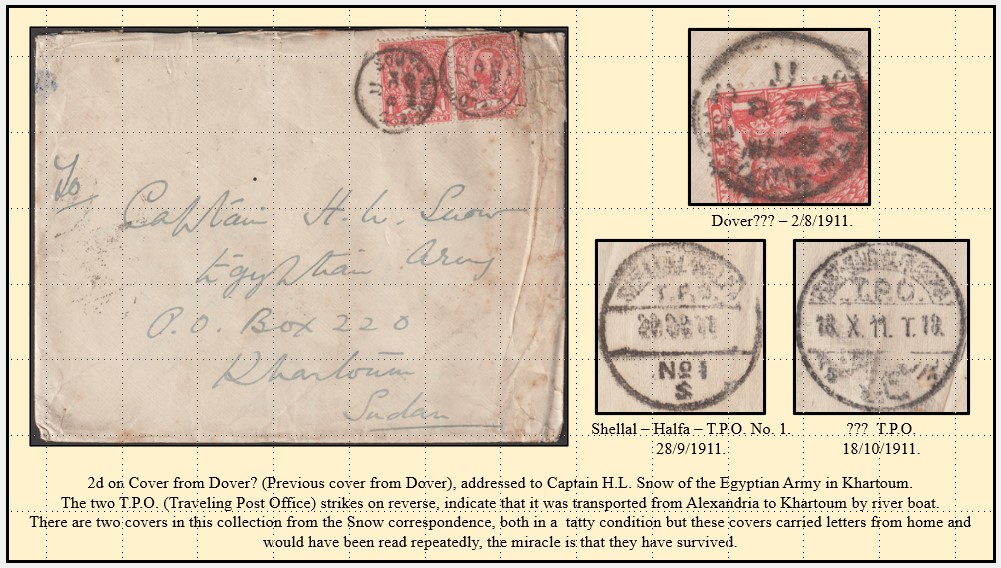 To
Captain H. L. Snow
Egyptian Army
P.O. Box 220
Khartoum
Sudan
Dover??? – 2/8/1911.
T.P.O.
28.09.11
No 1
S
T.P.O.
18. X. 11. T. 19.
Shellal – Halfa – T.P.O. No. 1.
28/9/1911.
??? T.P.O.
18/10/1911.
2d on Cover from Dover? (Previous cover from Dover), addressed to Captain H.L. Snow of the Egyptian Army in Khartoum.
The two T.P.O. (Traveling Post Office) strikes on reverse, indicate that it was transported from Alexandria to Khartoum by river boat.
There are two covers in this collection from the Snow correspondence, both in a tatty condition but these covers carried letters from home and
would have been read repeatedly, the miracle is that they have survived.